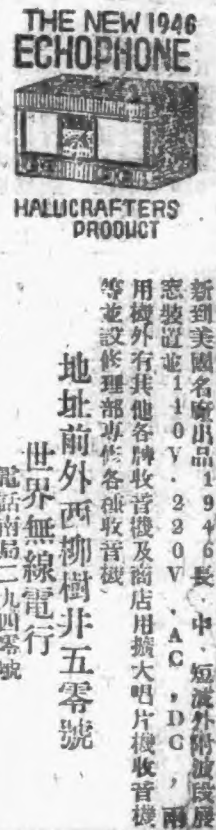 THE NEW 1946
ECHOPHONE
HALLICRAFTERS
PRODUCT
新到美國名廠出品1946長、中、短波外附波段展
窓裝置並110V.220V.AC,DC,兩
用機外有其他各牌收音機及商店用擴大唱片機收音機
等並設修理部專修各種收音機
地址前外西柳樹井五零號
世界無線電行
電話南局二九四零號